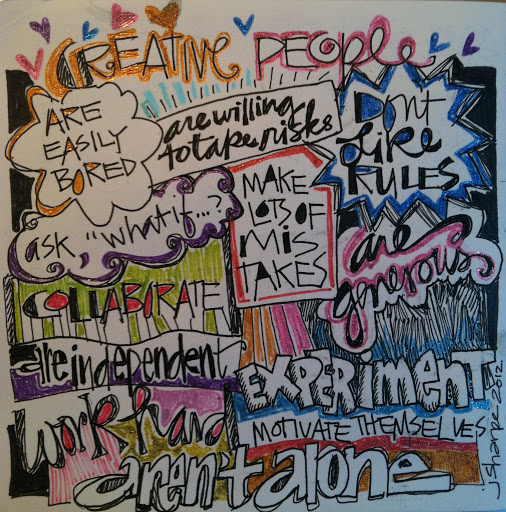 CREATIVE PEOPLE
ARE
EASILY
BORED
are willing
to take risks
Don't
like
RULES
ask, "what if...?
MAKE
LOTS OF
MIS
TAKES
are
generous
COLLABORATE
are independent
EXPERiment
work hard
MOTIVATE THEMSELVES
aren't alone
j Sharpe 2012